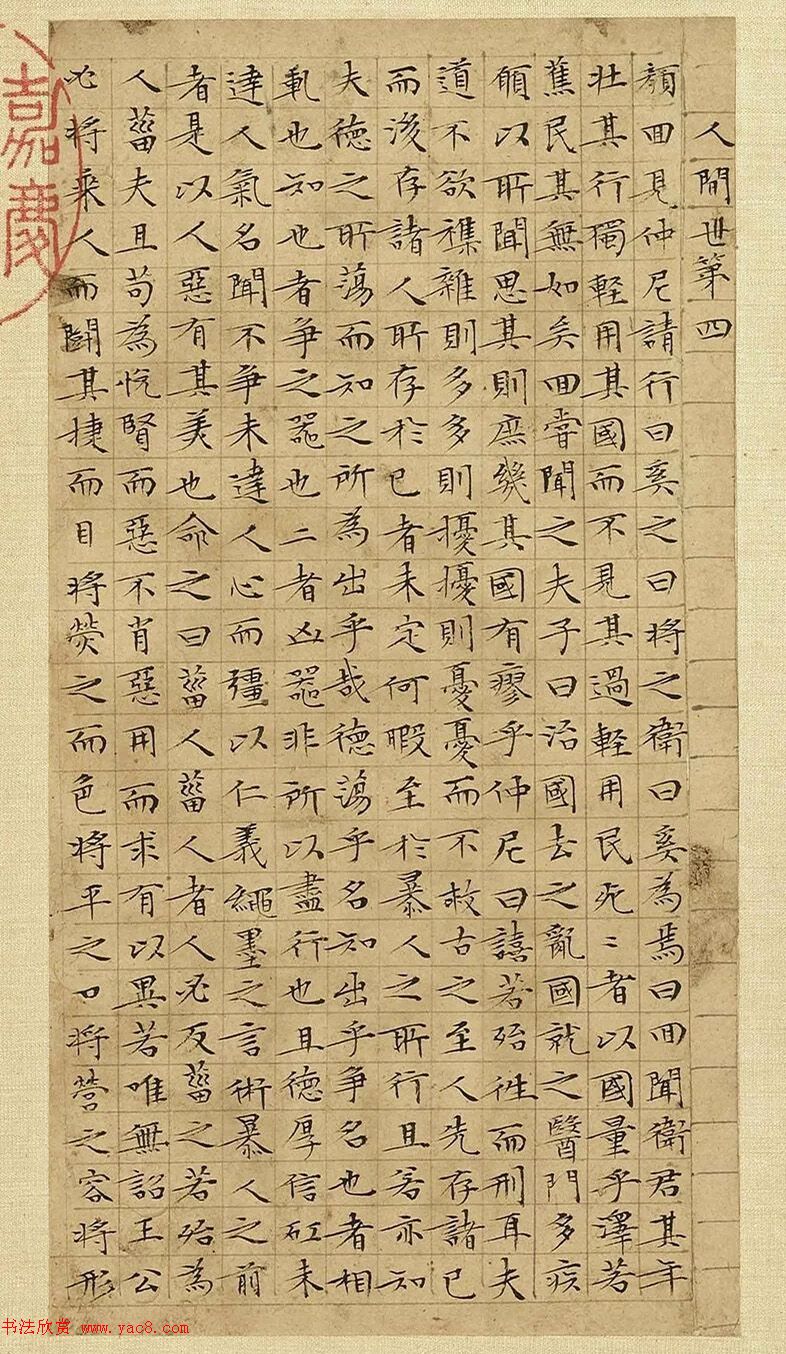 人間世第四
顏回見仲尼請行曰奚之曰將之衛曰奚為焉曰回聞衛君其年
壯其行獨輕用其國而不見其過輕用民死〻者以國量乎澤若
蕉民其無如矣回嘗聞之夫子曰治國去之亂國就之醫門多疾
願以所聞思其則庶幾其國有瘳乎仲尼曰譆若殆往而刑耳夫
道不欲襍雜則多多則擾擾則憂憂而不救古之至人先存諸己
而後存諸人所存於己者未定何暇至於暴人之所行且若亦知
夫德之所蕩而知之所為出乎哉德蕩乎名知出乎爭名也者相
軋也知也者爭之器也二者凶器非所以盡行也且德厚信矼未
達人氣名聞不爭未達人心而彊以仁義繩墨之言術暴人之前
者是以人惡有其美也命之曰菑人菑人者人必反菑之若殆為
人菑夫且苟為悅賢而惡不肖惡用而求有以異若唯無詔王公
必將乘人而鬪其捷而目將熒之而色將平之口將營之容將形
嘉慶
书法欣赏 www.yac8.com